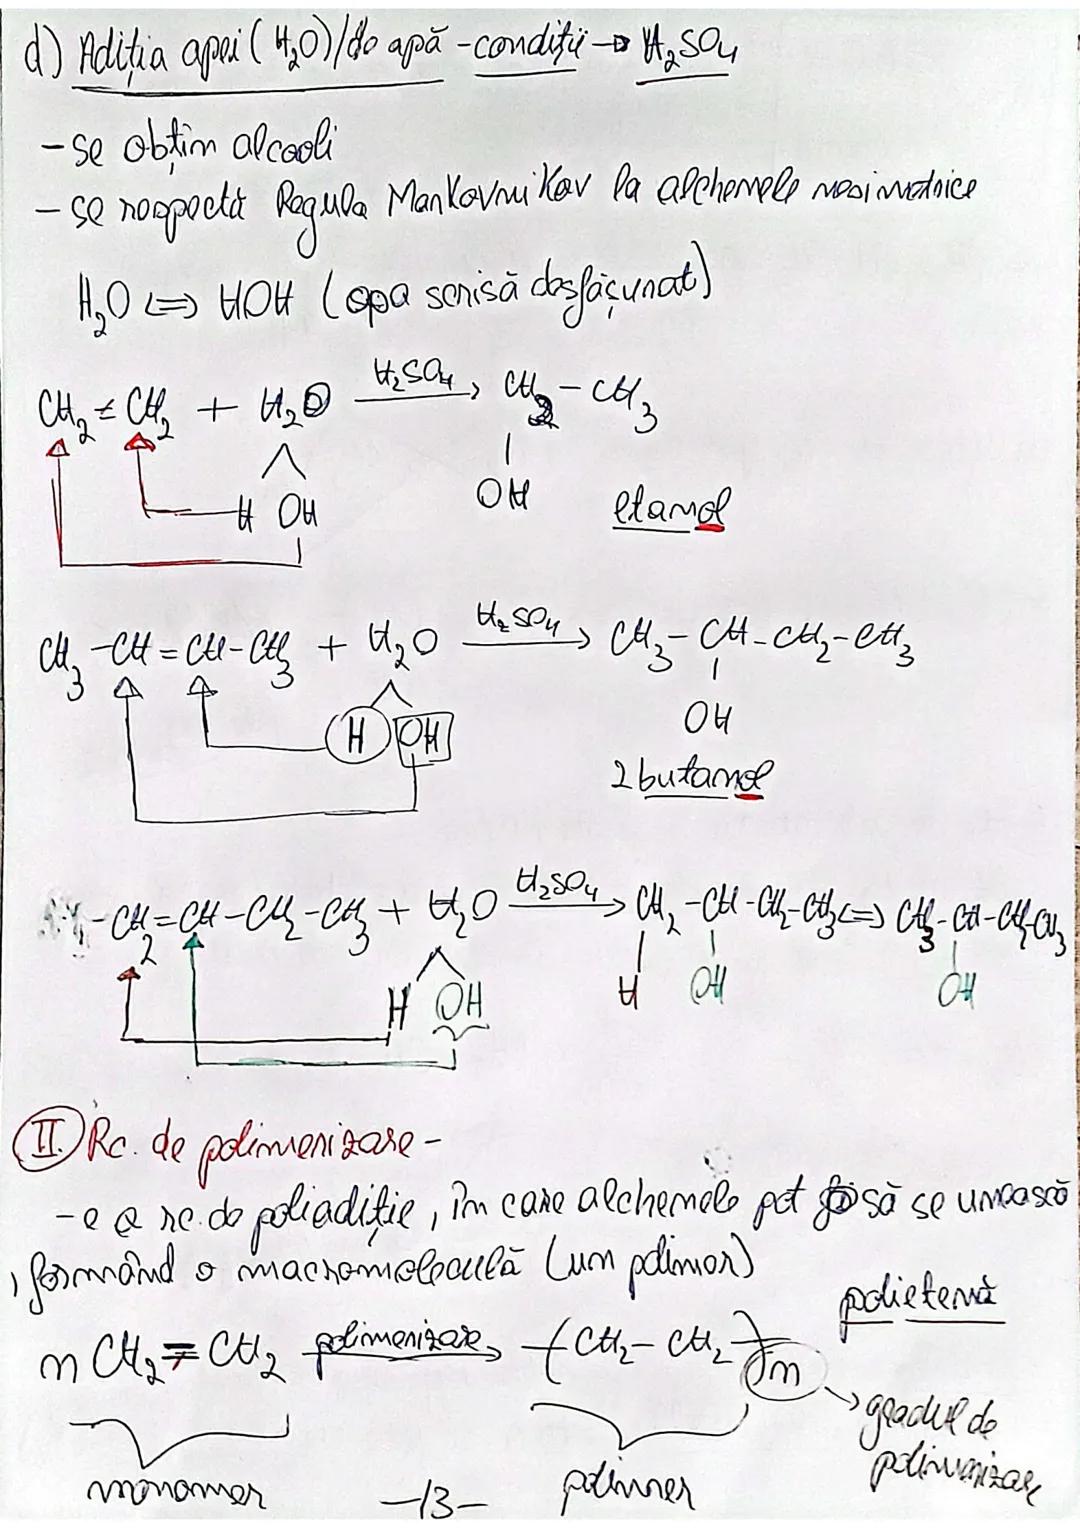 d) Adiția apei (H₂O)/de apă - condiții → H₂SO₄
- se obțin alcooli
- se respectă Regula Markovnikov la alchenele nesimetrice
H₂O ⇔ HOH (apa scrisă desfășurat)
CH₂ = CH₂ + H₂O H₂SO₄→ CH₂ - CH₃
H OH
OH
etanol
CH₃ - CH = CH - CH₃ + H₂O H₂SO₄→ CH₃ - CH - CH₂ - CH₃
H OH
OH
2 butanol
- CH₂ = CH - CH₂ - CH₃ + H₂O H₂SO₄→ CH₂ - CH - CH₂ - CH₃ ⇔ CH₃ - CH - CH₂ - CH₃
H OH
H OH OH
II. Rc. de polimerizare -
- e o rc. de poliadiție, în care alchenele pot să se unească
, formând o macromoleculă (un polimer)
polietenă
n CH₂ = CH₂ polimerizare→ -(CH₂ - CH₂)-n
→ gradul de
polimerizare
monomer polimer
-13-